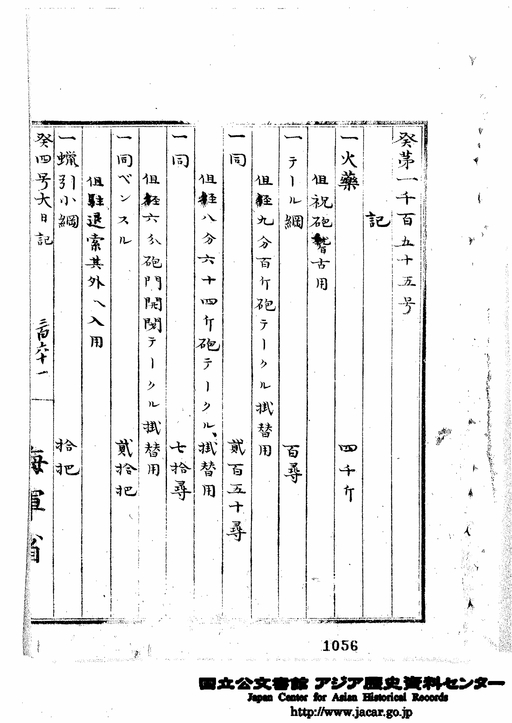 癸第一千百五十五号
記
一火藥 四千斤
但祝砲稽古用
一テール綱 百尋
但経九分百斤砲テークル掛替用
一同 貳百五十尋
但経八分六十四斤砲テークル掛替用
一同 七拾尋
但経六分砲門開閉テークル掛替用
一同ペンスル 貳拾把
但駐退索其外入用
一蠟引小綱 拾把
癸四号大日記 三百六十一 海軍省
1056
国立公文書館 アジア歴史資料センター
Japan Center for Asian Historical Records
http://www.jacar.go.jp